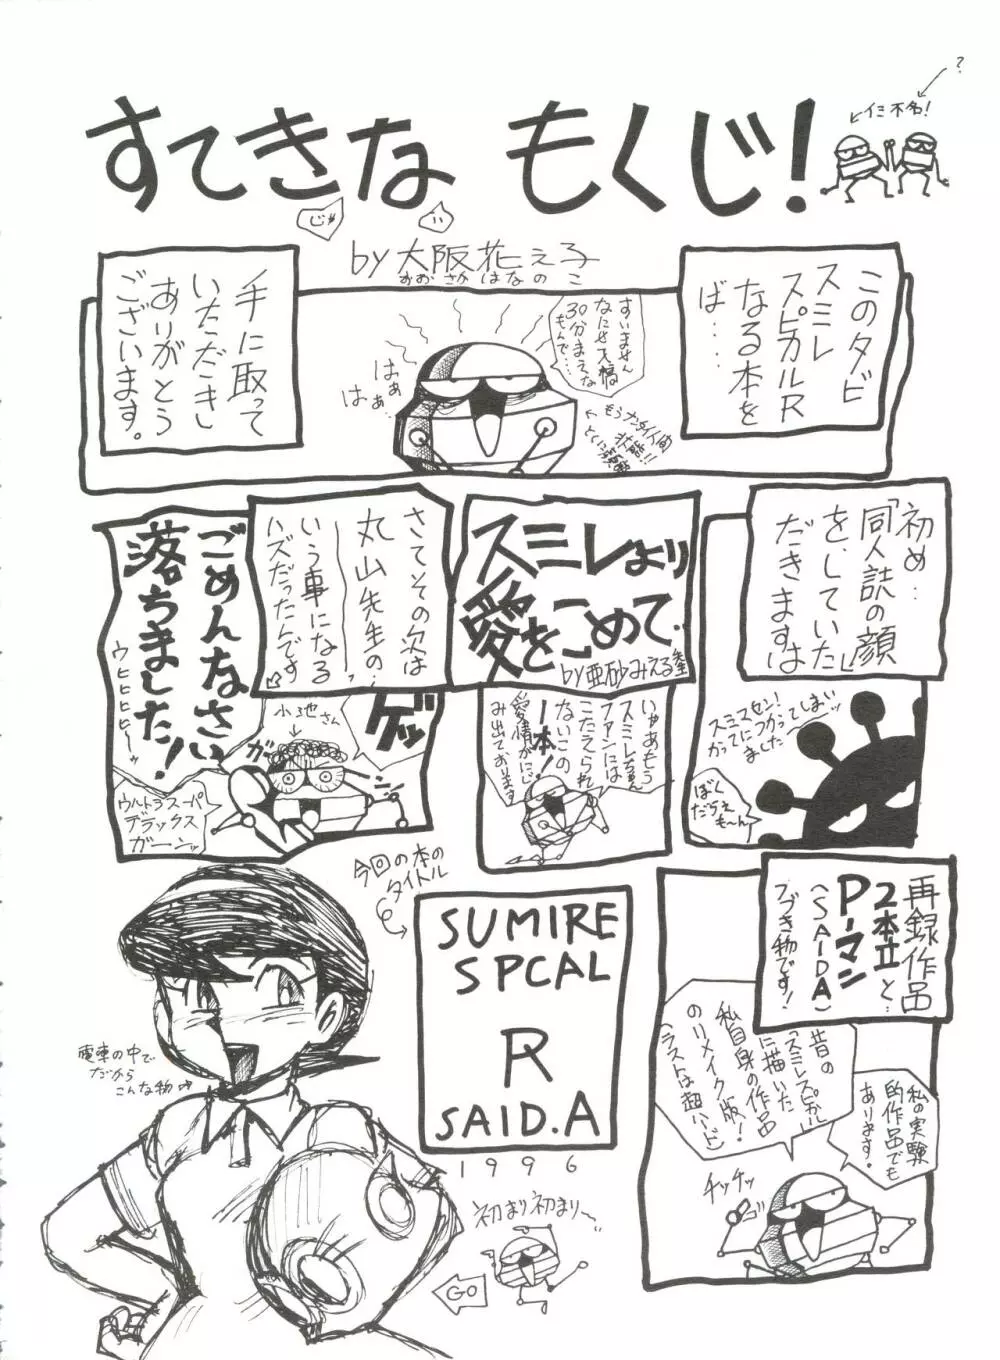 すてきな もくじ!
?
イミ不名!
じゅ
い
by 大阪花え子
おおさかはなのこ
このタビ
スミレ
スピカルR
なる本を
ば…
手に取って
いただきし
ありがとう
ございます。
すいません
なにせ天橋
30分まえな
もんで…
はぁ
はぁ…
初め…
「同人誌の顔」
をしていた
だきますは
スミマセン!
かってにつかってしまいッ
ました
ぼく
だらえ
も〜ん
スミレより
愛をこめて.
by亜砂みえる
いやあもう
スミレちゃん
ファンには
こたえられ
ないこの
一本!
愛情がにじ
み出ております
さてその次は
丸山先生の…
いう事になる
ハズだったんです
ごめんなさい
落ちました!
ウヒヒヒヒヒーッ
小池さん
ゲッ
ガー
ン
ウルトラスーパー
デラックス
ガーンッ
再録作品
2本立と…
Pーマン
(SAIDA)
つづき物です!
昔の
「スミレスピカル」
に描いた
私自身の作品
のリメイク版!
(ラストは超ハード)
私の実験
的作品でも
あります。
チッチッ
今回の本の
タイトル
SUMIRE
SPCAL
R
SAID.A
1996
電車の中で
だから
こんな物
初まり初まりー
GO